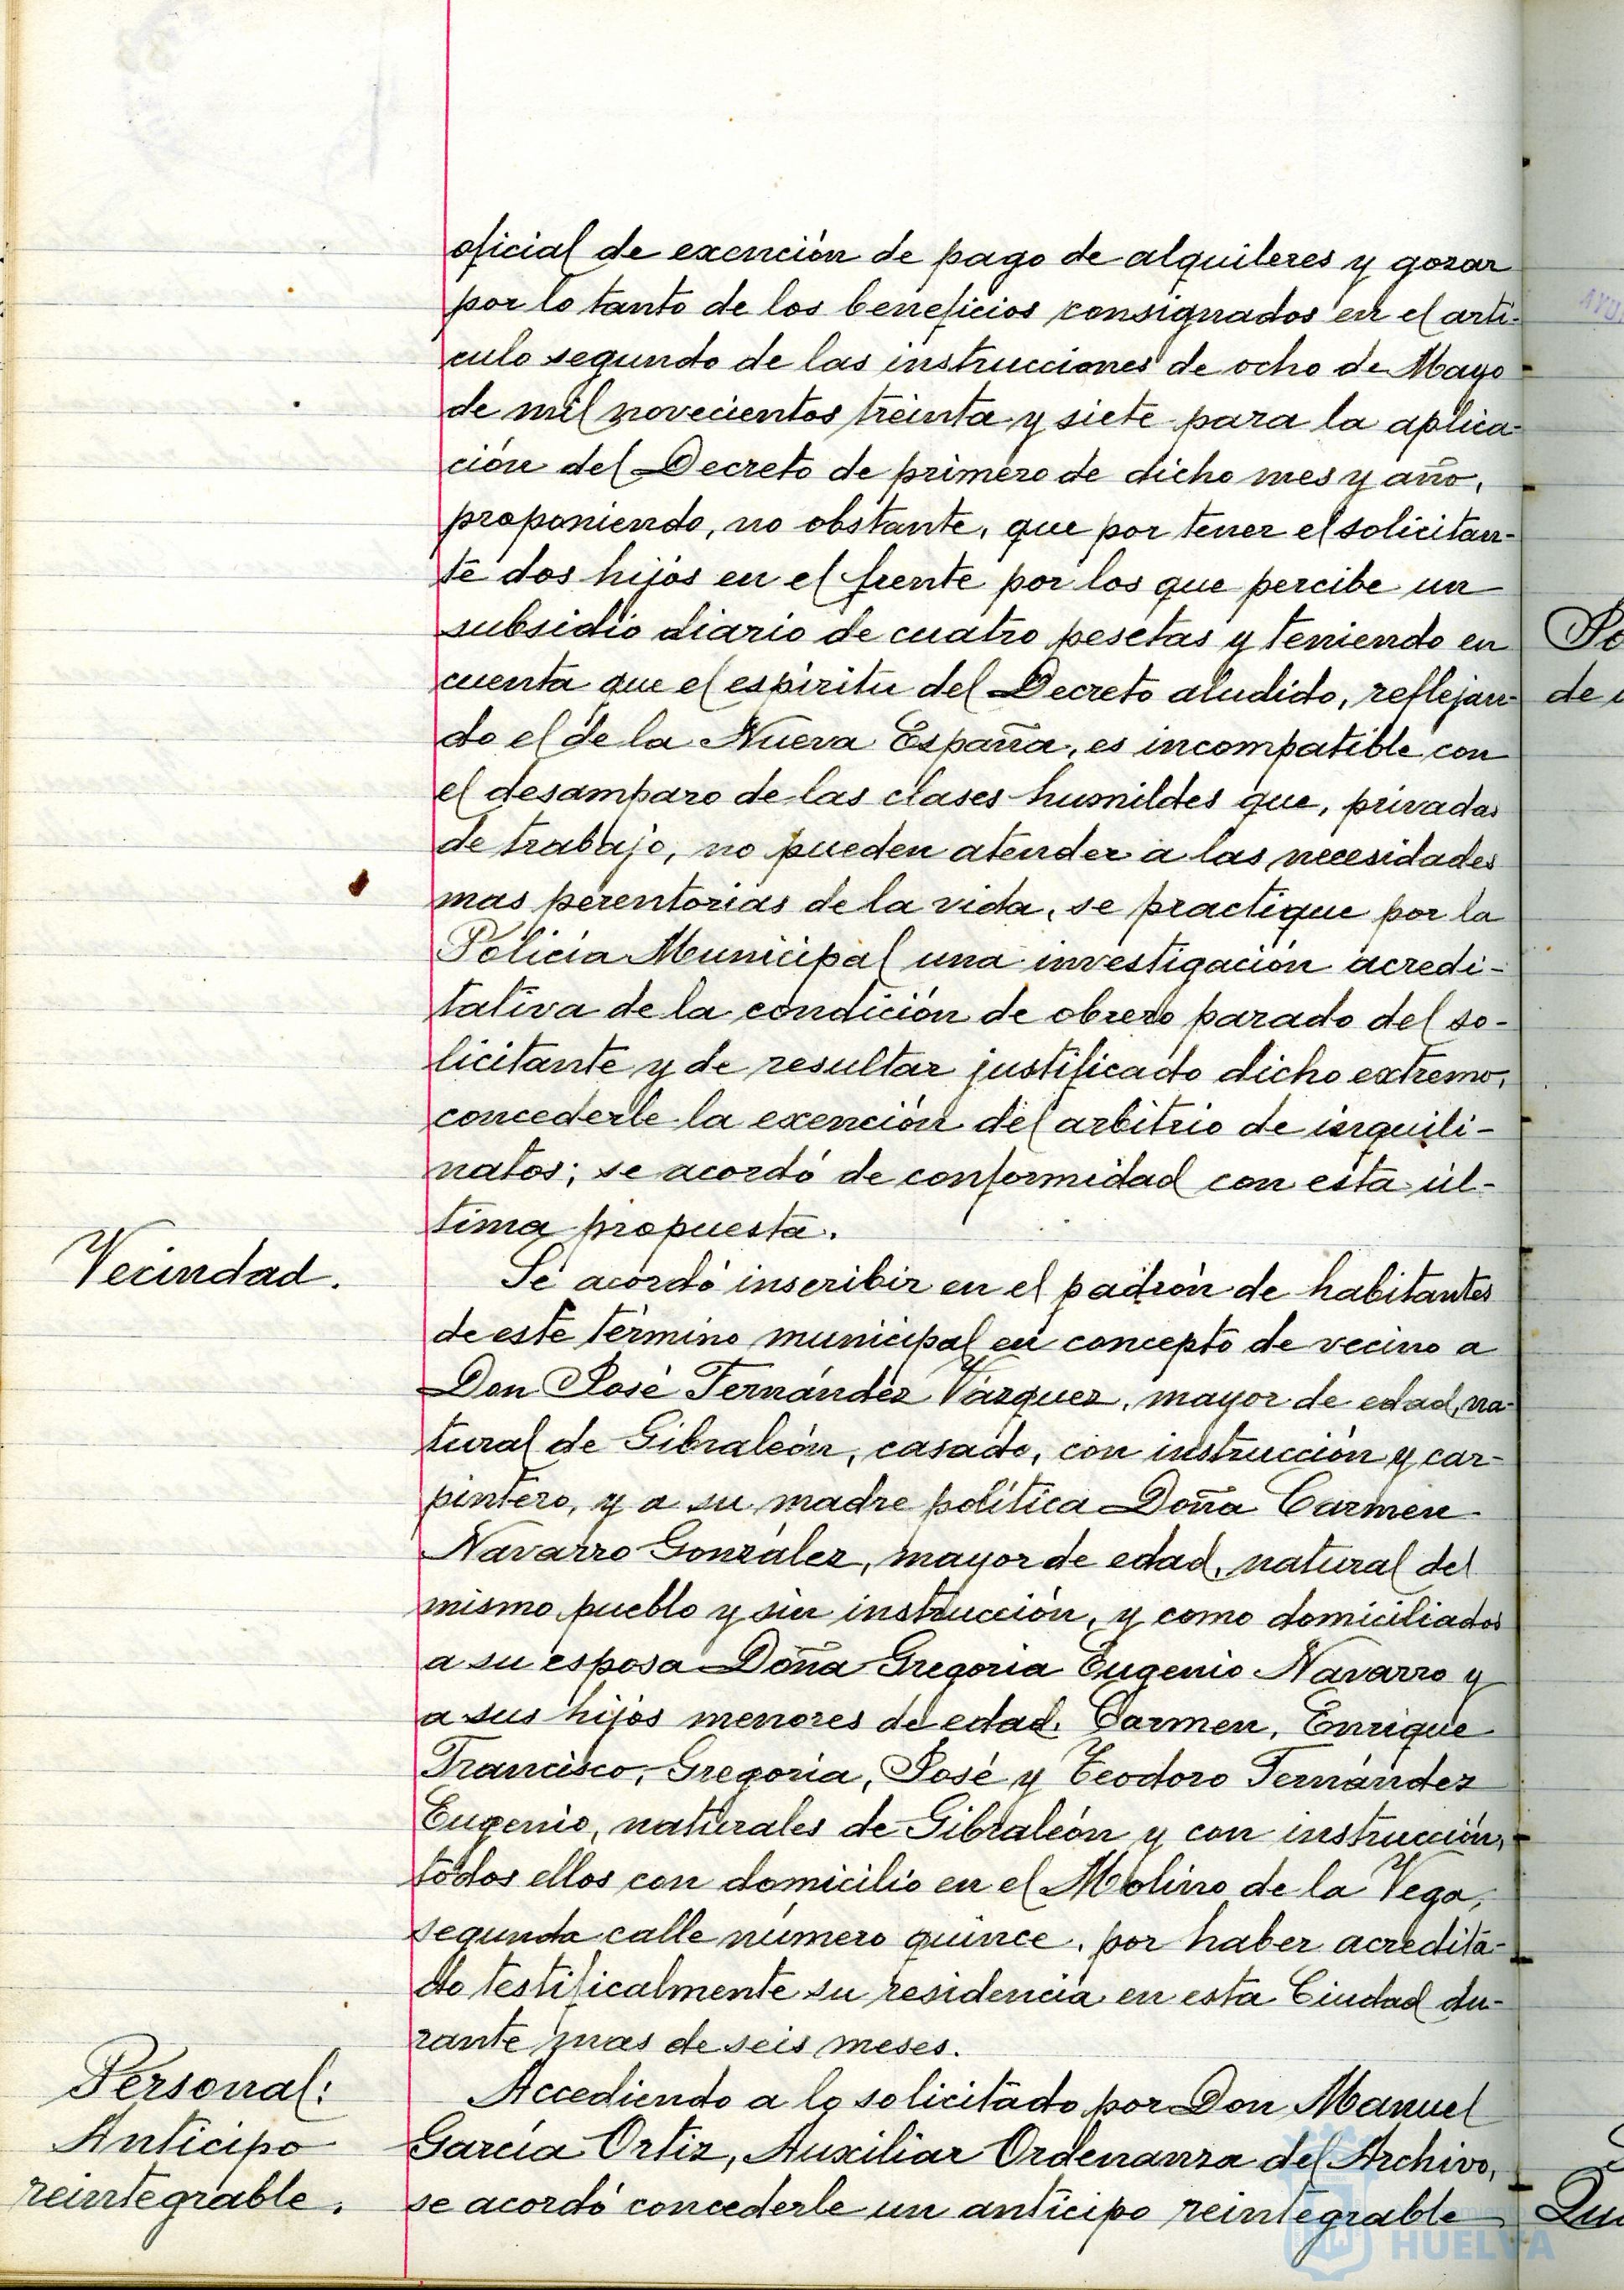 oficial de exención de pago de alquileres y gozar
por lo tanto de los beneficios consignados en el artí-
culo segundo de las instrucciones de ocho de Mayo
de mil novecientos treinta y siete para la aplica-
ción del Decreto de primero de dicho mes y año,
proponiendo, no obstante, que por tener el solicitan-
te dos hijos en el frente por los que percibe un
subsidio diario de cuatro pesetas y teniendo en
cuenta que el espíritu del Decreto aludido, reflejan-
do el de la Nueva España, es incompatible con
el desamparo de las clases humildes que, privadas
de trabajo, no pueden atender a las necesidades
mas perentorias de la vida, se practique por la
Policía Municipal una investigación acredi-
tativa de la condición de obrero parado del so-
licitante y de resultar justificado dicho extremo,
concederle la exención del arbitrio de inquili-
natos; se acordó de conformidad con esta úl-
tima propuesta.
Vecindad.
Se acordó inscribir en el padrón de habitantes
de este término municipal en concepto de vecino a
Don José Fernández Vázquez, mayor de edad, na-
tural de Gibraleón, casado, con instrucción y car-
pintero, y a su madre política Doña Carmen
Navarro González, mayor de edad, natural del
mismo pueblo y sin instrucción, y como domiciliados
a su esposa Doña Gregoria Eugenio Navarro y
a sus hijos menores de edad, Carmen, Enrique
Francisco, Gregoria, José y Teodoro Fernández
Eugenio, naturales de Gibraleón y con instrucción,
todos ellos con domicilio en el Molino de la Vega,
segunda calle número quince, por haber acredita-
do testificalmente su residencia en esta Ciudad du-
rante mas de seis meses.
Personal:
Anticipo
reintegrable.
Accediendo a lo solicitado por Don Manuel
García Ortiz, Auxiliar Ordenanza del Archivo,
se acordó concederle un anticipo reintegrable
de
HUELVA